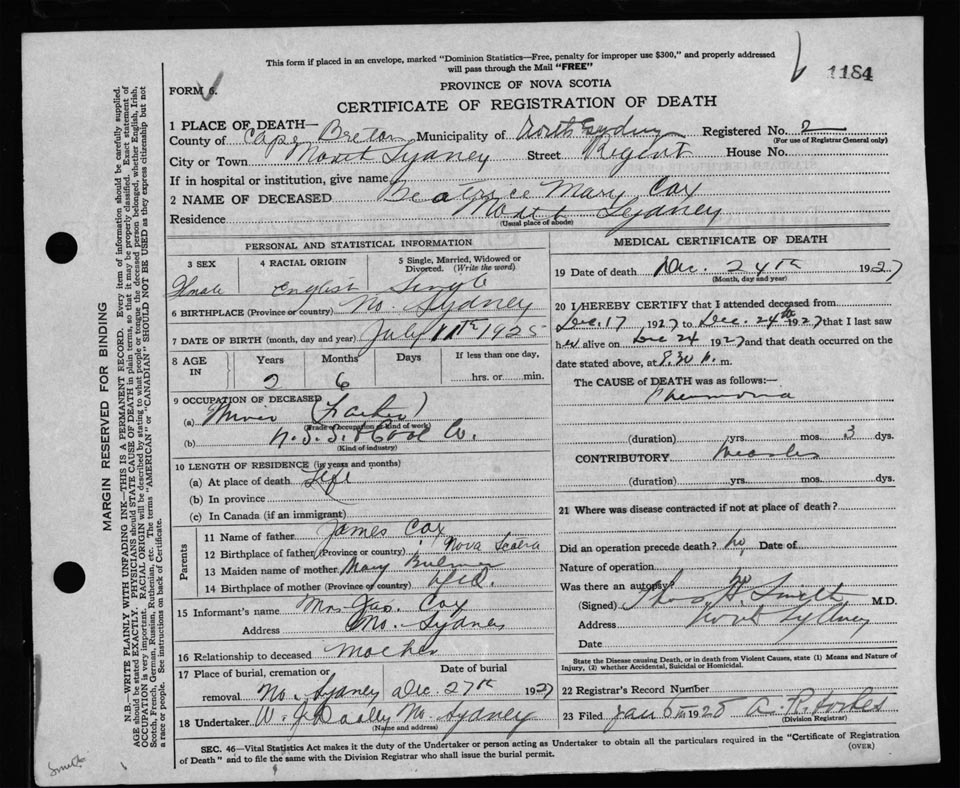 This form if placed in an envelope, marked "Dominion Statistics—Free, penalty for improper use $300," and properly addressed
will pass through the Mail "FREE"
1184
FORM 6.
PROVINCE OF NOVA SCOTIA
CERTIFICATE OF REGISTRATION OF DEATH
1 PLACE OF DEATH—
County of Cape Breton Municipality of North Sydney Registered No. 2
(For use of Registrar General only)
City or Town North Sydney Street Regent House No.
If in hospital or institution, give name
2 NAME OF DECEASED Beatrice Mary Cox
Residence North Sydney
(Usual place of abode)
PERSONAL AND STATISTICAL INFORMATION
3 SEX 4 RACIAL ORIGIN 5 Single, Married, Widowed or
Divorced. (Write the word)
Female English Single
6 BIRTHPLACE (Province or country) No. Sydney
7 DATE OF BIRTH (month, day and year) July 11th 1925
8 AGE IN Years Months Days If less than one day,
2 6 hrs. or min.
9 OCCUPATION OF DECEASED
(a) Miner (Father)
(Trade or occupation or kind of work)
(b) N.S.S. & Coal Co.
(Kind of industry)
10 LENGTH OF RESIDENCE (in years and months)
(a) At place of death Life
(b) In province
(c) In Canada (if an immigrant)
Parents
11 Name of father James Cox
12 Birthplace of father (Province or country) Nova Scotia
13 Maiden name of mother Mary
14 Birthplace of mother (Province or country)
15 Informant's name Mrs Jas. Cox
Address No. Sydney
16 Relationship to deceased Mother
17 Place of burial, cremation or Date of burial
removal No. Sydney Dec. 27th 1927
18 Undertaker W. J. Dooley No. Sydney
(Name and address)
MEDICAL CERTIFICATE OF DEATH
19 Date of death Dec. 24th 1927
(Month, day and year)
20 I HEREBY CERTIFY that I attended deceased from
Dec. 17 1927 to Dec. 24th 1927 that I last saw
her alive on Dec 24 1927 and that death occurred on the
date stated above, at 8.30 p.m.
The CAUSE of DEATH was as follows:—
Pneumonia
(duration) yrs. mos. 3 dys.
CONTRIBUTORY Measles
(duration) yrs. mos. dys.
21 Where was disease contracted if not at place of death?
Did an operation precede death? no, Date of
Nature of operation
Was there an autopsy? no
(Signed) Smith M.D.
Address North Sydney
Date
State the Disease causing Death, or in death from Violent Causes, state (1) Means and Nature of
Injury, (2) whether Accidental, Suicidal or Homicidal.
22 Registrar's Record Number
23 Filed Jan 5th 1928 A. R. Forbes
(Division Registrar)
SEC. 46—Vital Statistics Act makes it the duty of the Undertaker or person acting as Undertaker to obtain all the particulars required in the "Certificate of Registration
of Death" and to file the same with the Division Registrar who shall issue the burial permit.
(OVER)
MARGIN RESERVED FOR BINDING
N.B.—WRITE PLAINLY WITH UNFADING INK—THIS IS A PERMANENT RECORD. Every item of information should be carefully supplied.
AGE should be stated EXACTLY. PHYSICIANS should STATE CAUSE OF DEATH in plain terms, so that it may be properly classified. Exact statement of
OCCUPATION is very important. RACIAL ORIGIN will be described by stating to what people or tongue the deceased person belonged, whether English, Irish,
Scotch, French, German, Russian, Ruthenian, etc. The terms "AMERICAN" or "CANADIAN" SHOULD NOT BE USED as they express citizenship but not
a race or people. See instructions on back of Certificate.
Smith